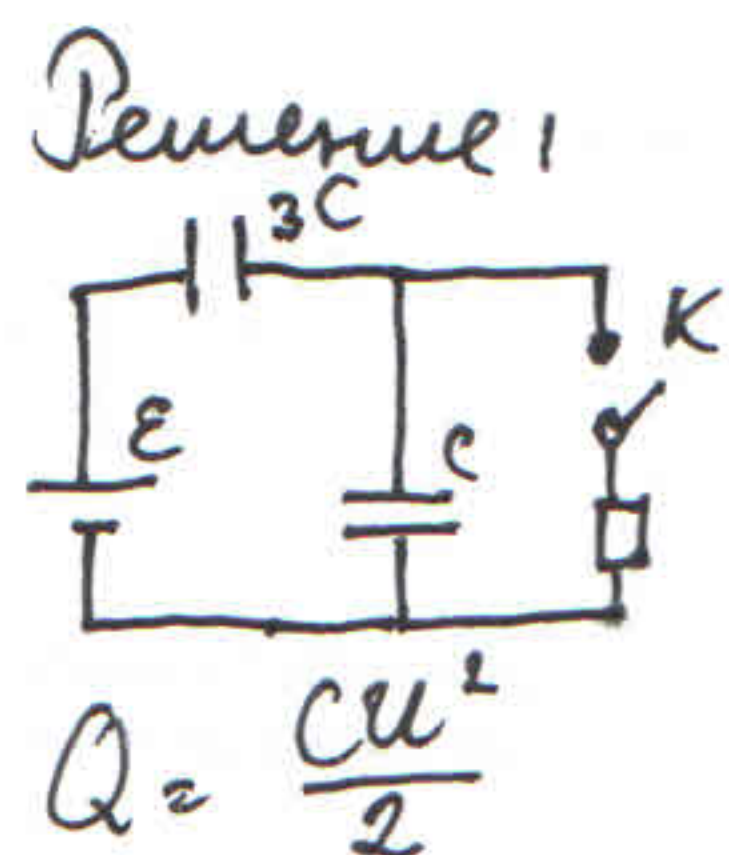 Решение 1
3C
K
ε
C
Q = CU²/2